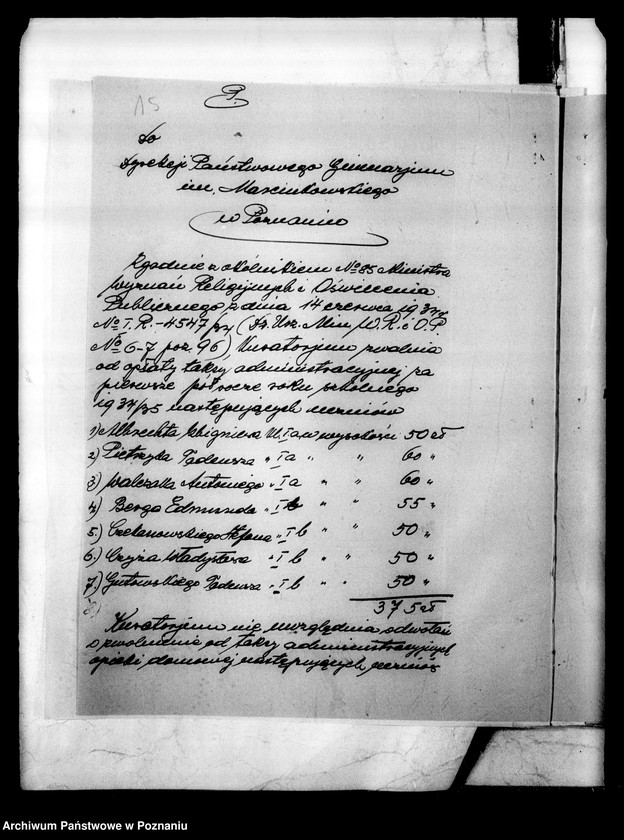 15
P.
Do
Dyrekcji Państwowego Gimnazjum
im. Marcinkowskiego
w Poznaniu
Zgodnie z okólnikiem No 85 Ministra
Wyznań Religijnych i Oświecenia
Publicznego z dnia 14 czerwca 1934 r.
No I. R.-4547/34 (Dz. Urz. Min. W. R. i O. P.
No 6-7 poz. 96) Kuratorjum zwalnia
od opłaty taksy administracyjnej za
pierwsze półrocze roku szkolnego
1934/35 następujących uczniów
1) Albrechta Zbigniewa kl. Ia w wysokości 50 zł
2) Pietrzyka Tadeusza " Ia " " 60 "
3) Walczaka Antoniego " Ia " " 60 "
4) Berga Edmunda " I b " " 55 "
5.) Czekanowskiego Stefana " I b " " 50 "
6.) Czyża Władysława " I b " " 50 "
7.) Gutowskiego Tadeusza " I b " " 50 "
8) 375 zł
Kuratorjum nie uwzględnia odwołań
o zwolnienie od taksy administracyjnej
opieki domowej następujących uczniów
Archiwum Państwowe w Poznaniu